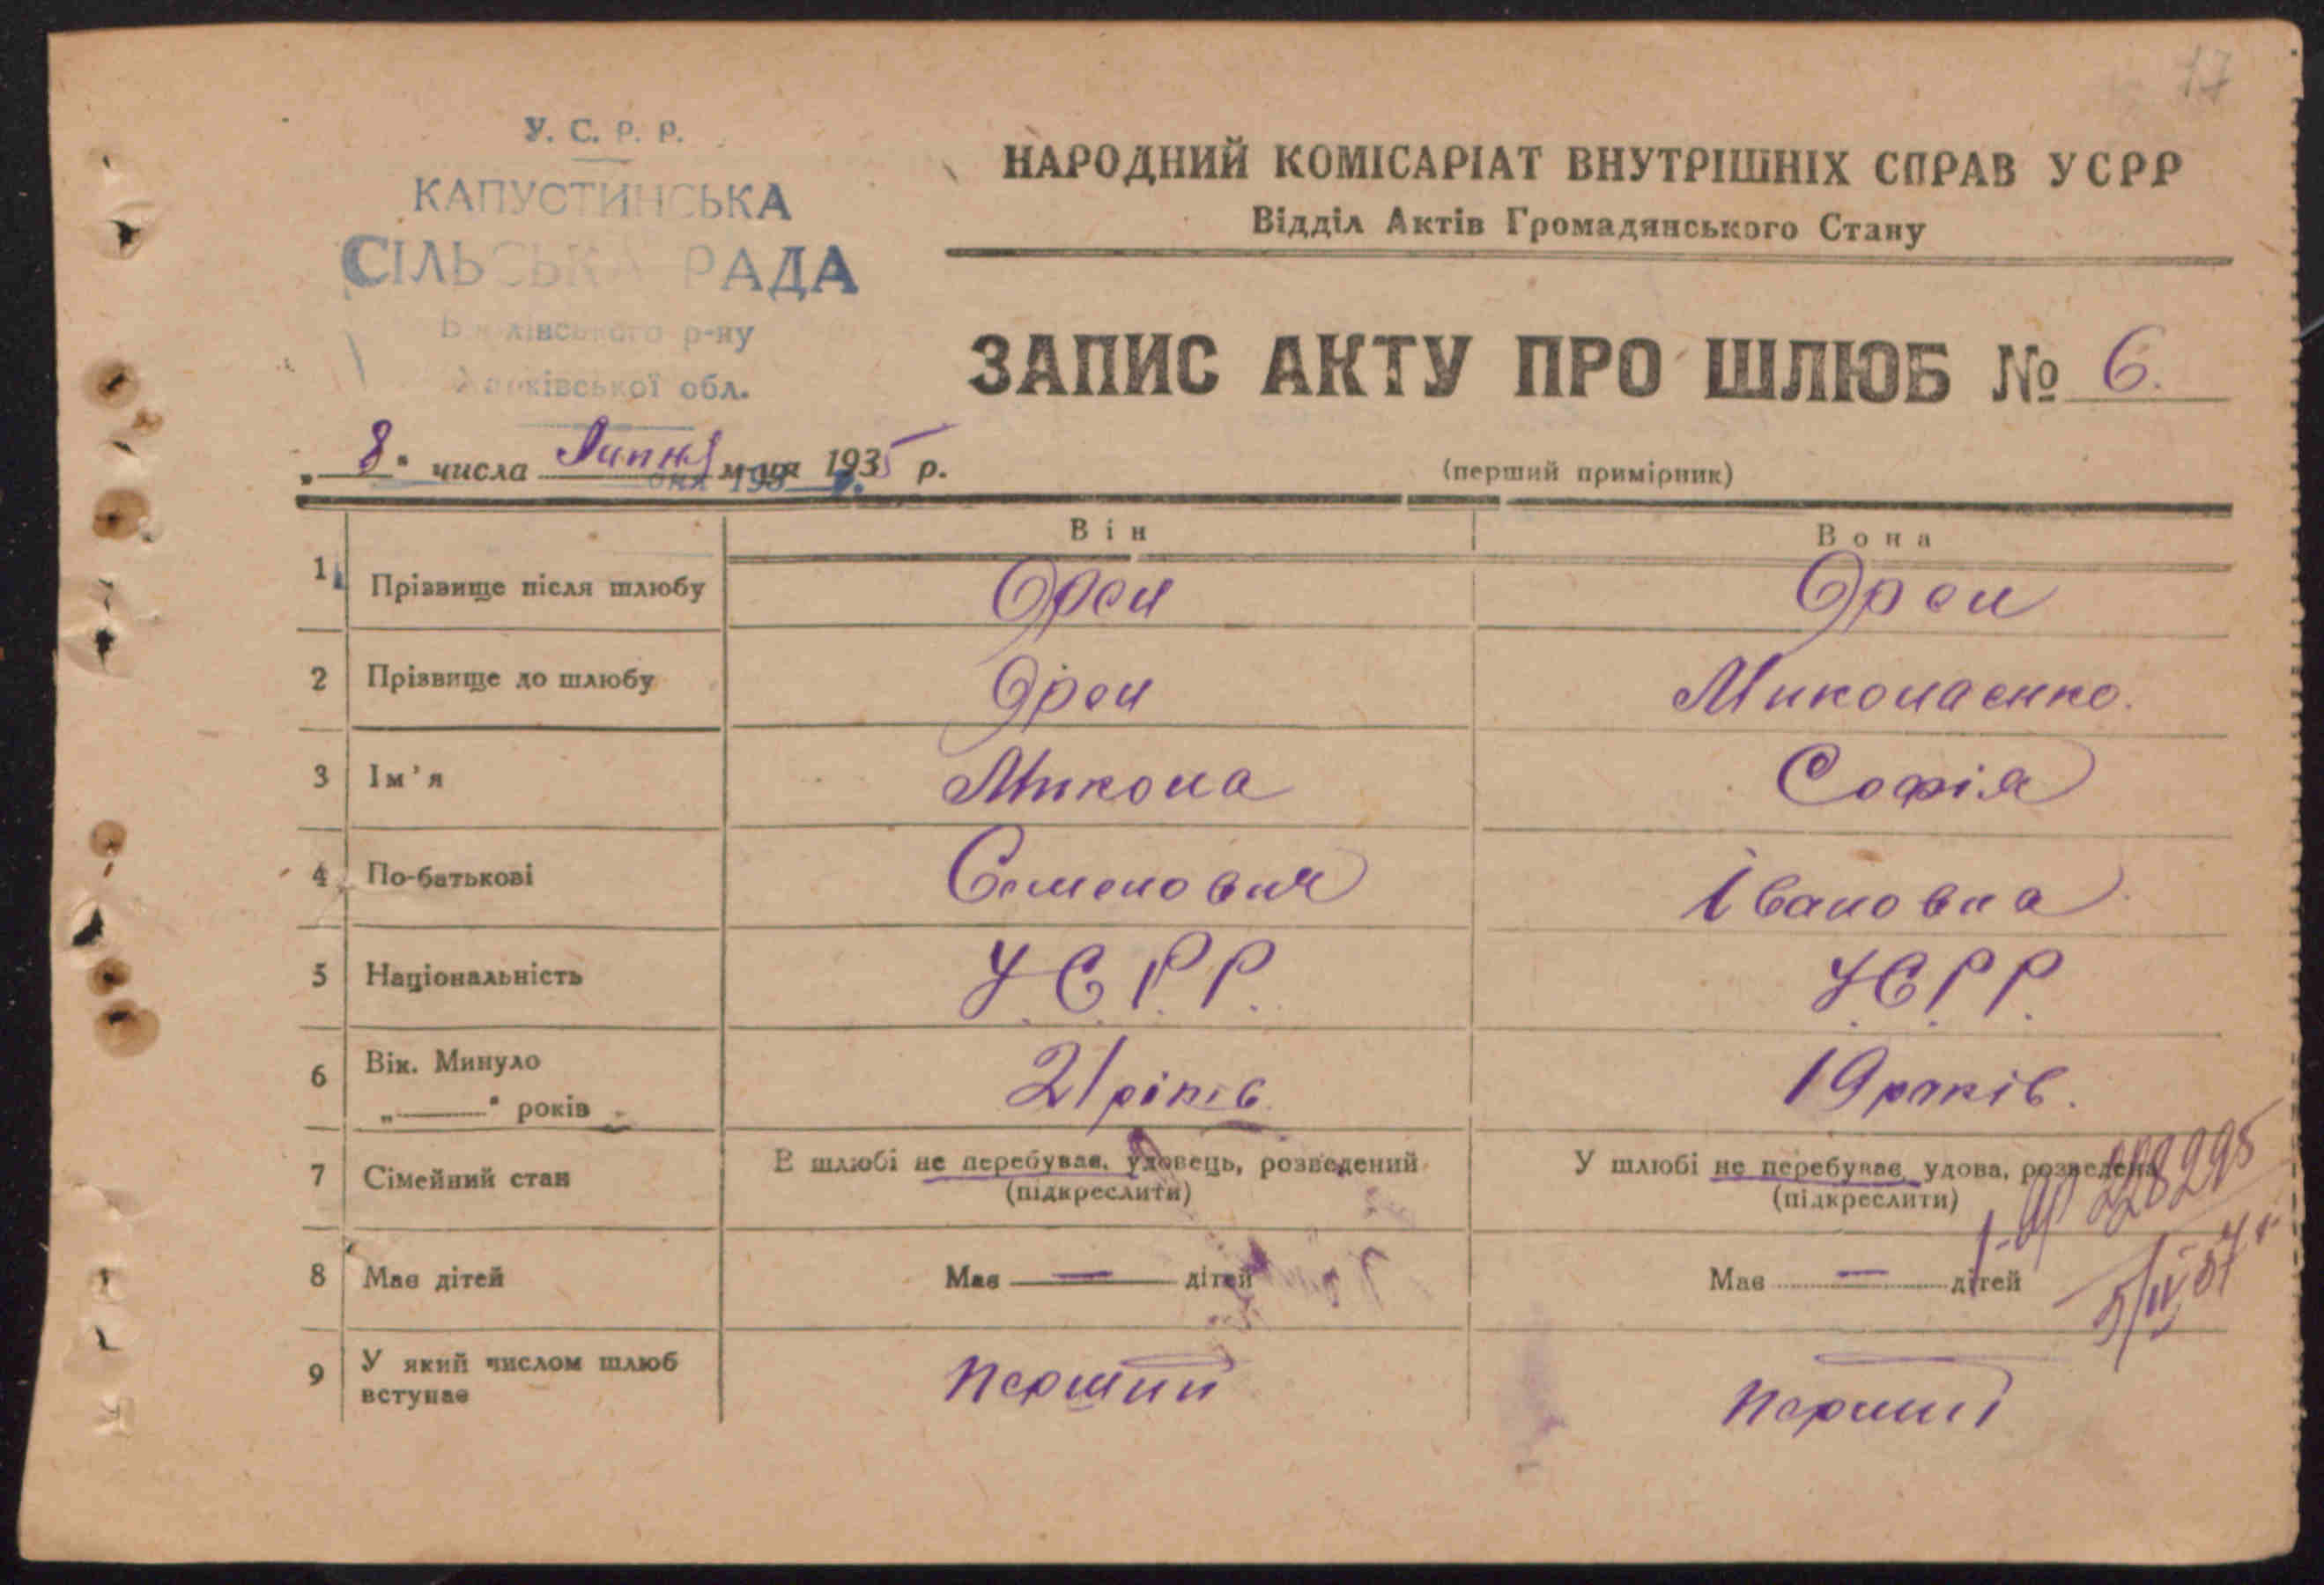 17
У. С. Р. Р.
КАПУСТИНСЬКА
СІЛЬСЬКА РАДА
р-ну
Харківської обл.
НАРОДНИЙ КОМІСАРІАТ ВНУТРІШНІХ СПРАВ УСРР
Відділ Актів Громадянського Стану
ЗАПИС АКТУ ПРО ШЛЮБ № 6.
„8" числа Липня м-ця 1935 р.
(перший примірник)
Він Вона
1 Прізвище після шлюбу Ореи Ореи
2 Прізвище до шлюбу Ореи Миколаенко.
3 Ім'я Микола Софія
4 По-батькові Семенович Івановна
5 Національність У.С.Р.Р. У.С.Р.Р.
6 Вік. Минуло
„——" років 21 років 19 років.
7 Сімейний стан В шлюбі не перебував, удовець, розведений У шлюбі не перебуває, удова, розведена
(підкреслити) (підкреслити)
228295
8 Має дітей Має — дітей Має — дітей
5/IV 57
9 У який числом шлюб
вступає Перший Перший